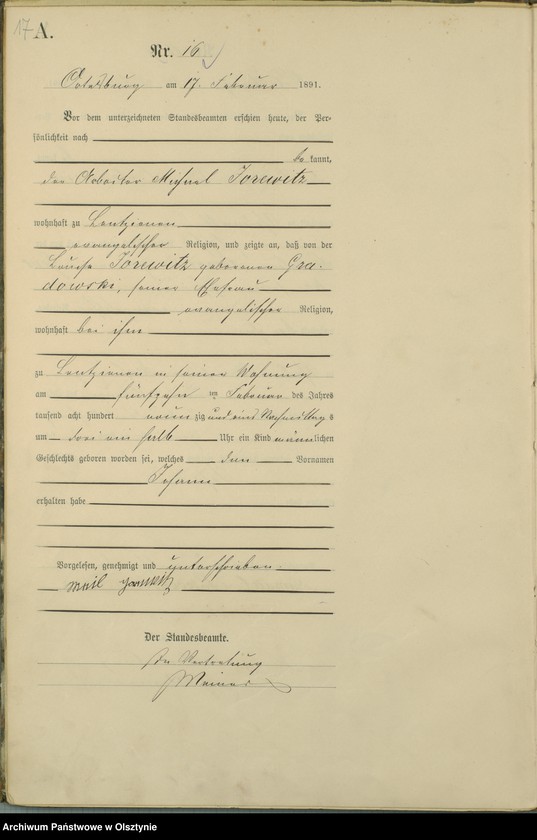 17 A.
Nr. 16
Ortelsburg am 17. Februar 1891.
Vor dem unterzeichneten Standesbeamten erschien heute, der Per-
sönlichkeit nach
be kannt,
der Arbeiter Michael Jorewitz
wohnhaft zu Lentzienen
evangelischer Religion, und zeigte an, daß von der
Louise Jorewitz geborenen Gra-
dowski, seiner Ehefrau
evangelischer Religion,
wohnhaft bei ihm
zu Lentzienen in seiner Wohnung
am fünfzehn ten Februar des Jahres
tausend acht hundert neun zig und eins Nachmittag s
um drei ein halb Uhr ein Kind männlichen
Geschlechts geboren worden sei, welches den Vornamen
Johann
erhalten habe
Vorgelesen, genehmigt und unterschrieben
Der Standesbeamte.
In Vertretung
Archiwum Państwowe w Olsztynie